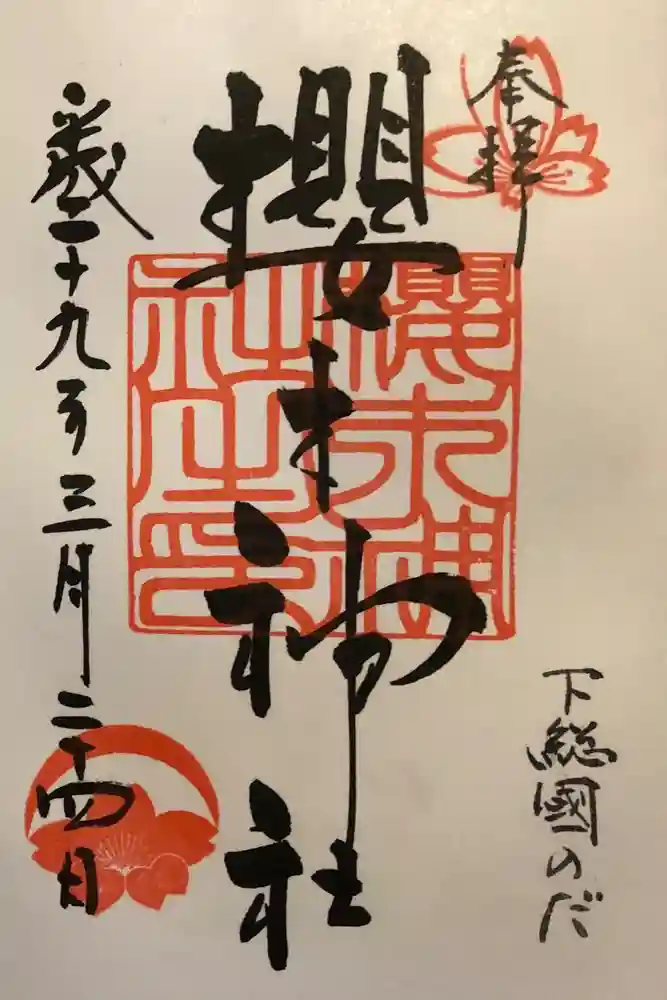 奉拝
櫻木神社
下総國のだ
平成二十九年三月二十四日
櫻木神
社之印